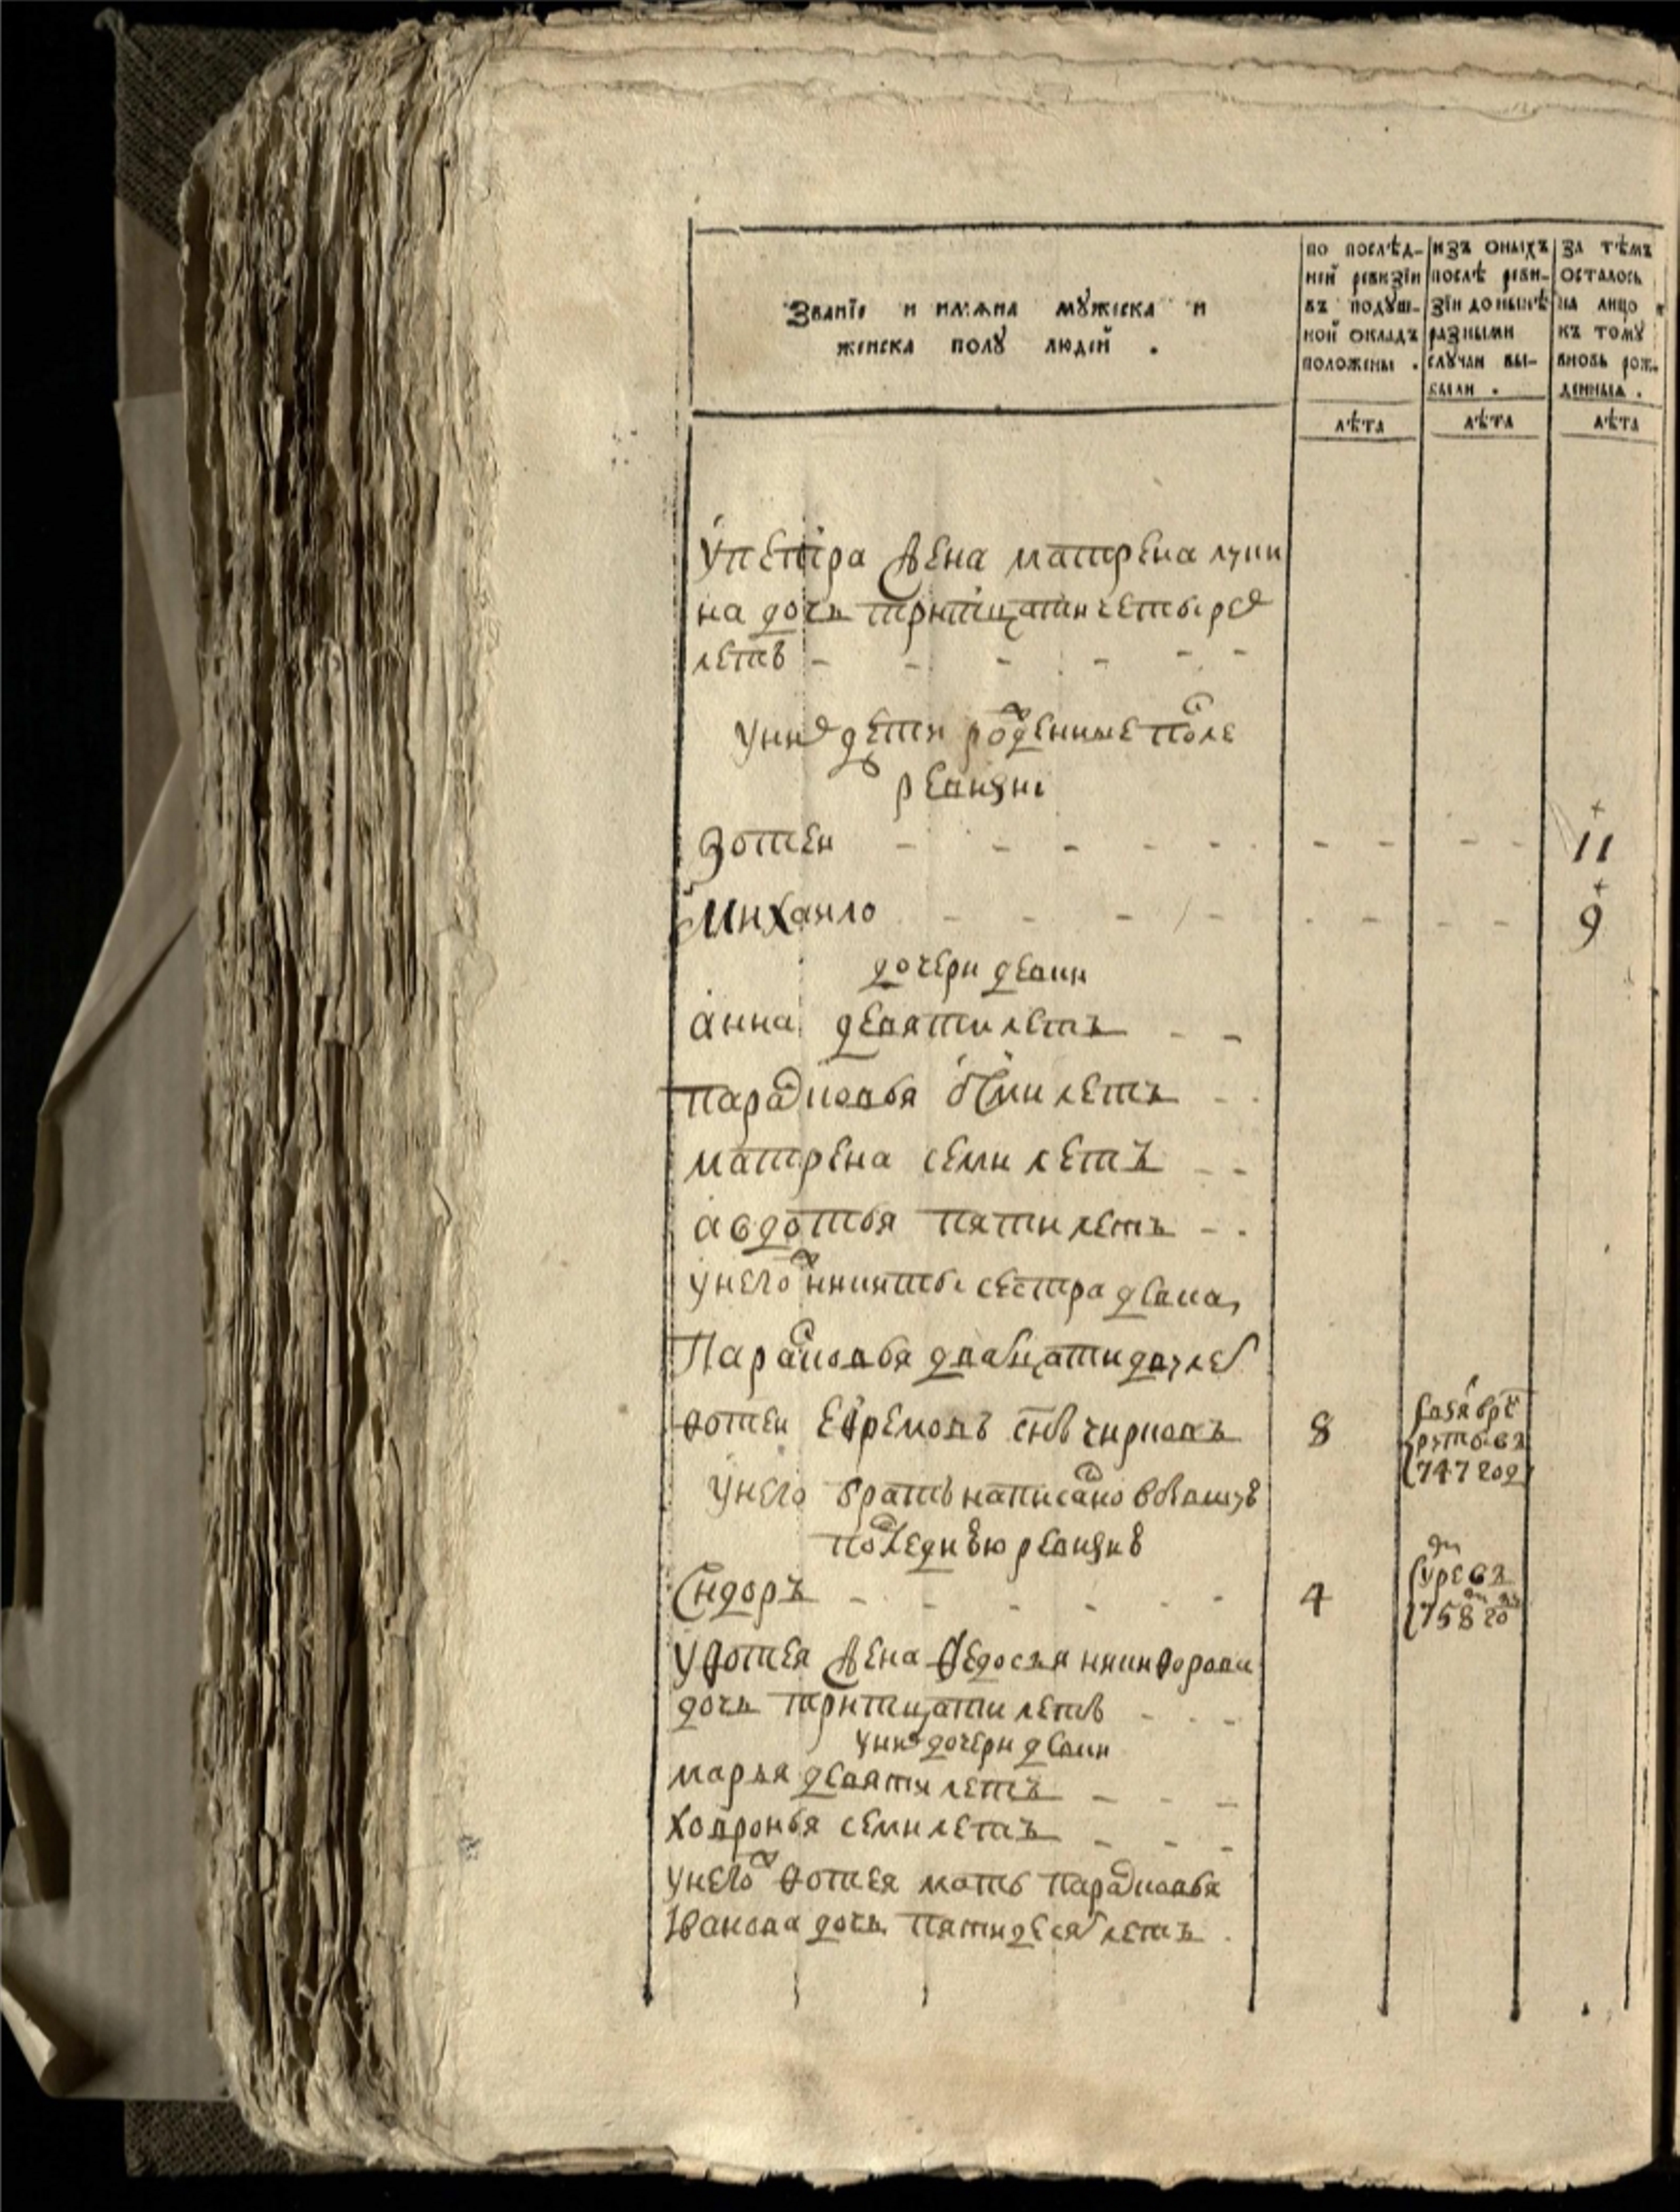 Званїе и имѧна мꙋжеска и
женска полꙋ людей .
по послѣд-
ней ревизїи
въ подꙋш-
ной окладъ
положены .
изъ оныхъ
послѣ реви-
зїи до нынѣ
разными
слꙋчаи вы-
были .
за тѣмъ
осталось
на лицо
къ томꙋ
вновь рож-
денныя .
лѣта
лѣта
лѣта
упетра жена матрена луки
на дочь тритцати четырех
летъ
уних дети рожденные после
ревизии
Фотеи 11
Михаило 9
дочери девки
анна девяти летъ
парасковья осми летъ
матрена семи летъ
авдотья пяти летъ
унегож никиты сестра девка
Парасковья двадцати дву лет
фотеи Ефремовъ снъ чирковъ 8
взят врε
круты въ
747 году
унего братъ написано вбывшую
последнюю ревизию
Сидоръ 4
умре въ
758 году
уфотея жена федосья никифорова
дочь тритцати летъ
уних дочери девки
марья девяти летъ
ховронья семи летъ
унегож фотея мать парасковья
Иванова дочь пятидесят летъ